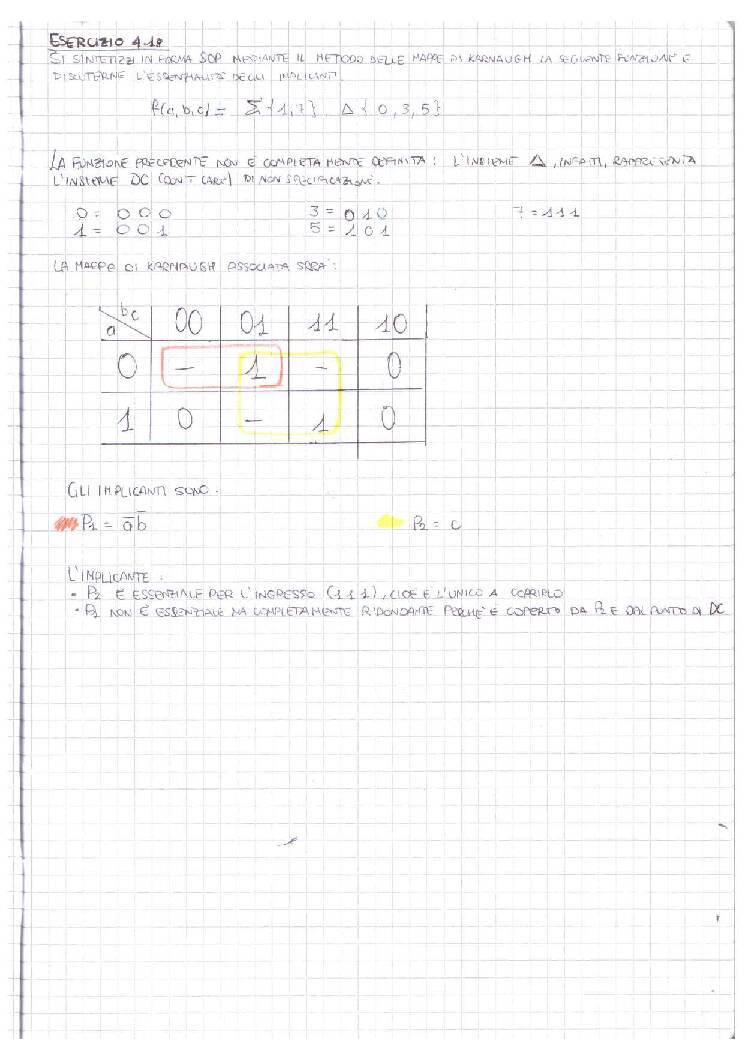 ESERCIZIO 4.18
SI SINTETIZZI IN FORMA SOP MEDIANTE IL METODO DELLE MAPPE DI KARNAUGH LA SEGUENTE FUNZIONE E
DISCUTERNE L'ESSENZIALITÀ DEGLI IMPLICANTI.
f(a,b,c) = Σ{1,7}, Δ{0,3,5}
LA FUNZIONE PRECEDENTE NON È COMPLETAMENTE DEFINITA: L'INSIEME Δ, INFATTI, RAPPRESENTA
L'INSIEME DC (DON'T CARE) DI NON SPECIFICAZIONE.
0 = 000 3 = 010 7 = 111
1 = 001 5 = 101
LA MAPPA DI KARNAUGH ASSOCIATA SARÀ:
a \ bc 00 01 11 10
0 - 1 - 0
1 0 - 1 0
GLI IMPLICANTI SONO:
P1 = a̅b̅ P2 = c
L'IMPLICANTE:
- P2 È ESSENZIALE PER L'INGRESSO (111), CIOÈ È L'UNICO A COPRIRLO
- P1 NON È ESSENZIALE MA COMPLETAMENTE RIDONDANTE PERCHÉ È COPERTO DA P2 E DAL PUNTO DI DC